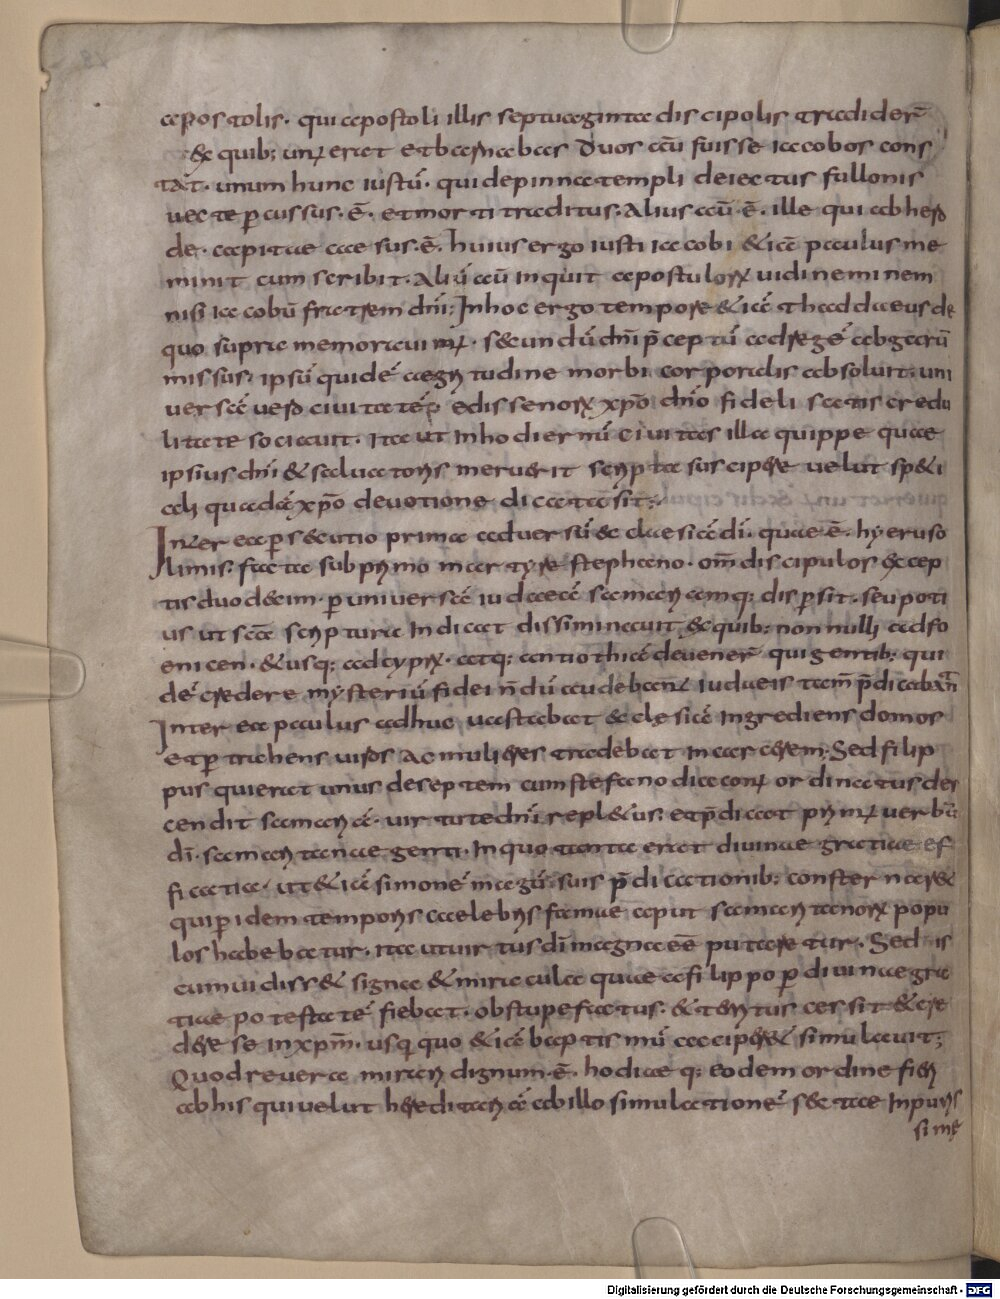 apostolis. qui apostoli illis septuaginta discipolis tradider̄
Ex quib; un; erat et barnabas Duos aū fuisse iacobos cons
tat. unum hunc iustū. qui de pinna templi deiectus fullonis
uecte p̲cussus. ē. et morti traditus. Alius aū. ē. ille qui ab hero
de. capitae caesus. ē. huius ergo iusti iacobi & iā paulus me
minit cum scribit. Aliū aū inquit apostulorꝝ uidi neminem
nisi iacobū fratrem dn̄i; In hoc ergo tempore & iā thaddaeus de
quo supra memorauim; . secundū dn̄i p̄ceptū ad regē abgarū
missus. ipsū quidē aegritudine morbi corporalis absoluit. uni
uersā uero ciuitatē edissenorꝝ xp̄o dn̄o fideli satis credu
litate sociauit. Ita ut in hodiernū ciuitas illa quippe quae
ipsius dn̄i & saluatoris meruerit scripta suscipere uelut sp&i
ali quadā xp̄o deuotione dicata sit;
Inter ea p̲secutio prima aduersū ecclaesiā dī. quae ē. hyeruso
limis. facta sub primo martyre stephano. om̄ discipulos excep
tis duodecim. p̲ uniuersā iudaeā samariamq; disp̲sit. seu poti
us ut sc̄a scriptura indicat dissiminauit ex quib; non nulli ad fo
enicen. & usq; ad cyprꝝ. atq; antiothiā deuener̄ qui gentib; qui
dē credere mysteriū fidei n̄dū audebant iudaeis tam̄ p̄dicabant
Inter ea paulus adhuc uastabat eclesiā Ingrediens domos
et p̲trahens uiros ac mulieres tradebat in carcerem; Sed filip
pus qui erat unus de septem cum stefano diacon; ordinatus des
cendit samariā. uirtute dn̄i repl&us. et p̄dicat prim; uerbū
dī. samaritanae genti. In quo tanta erat diuinae gratiae ef
ficatia. ut & iā simonē magū. suis p̄dicationib; consternar&
qui p̲ idem temporis caelebris famae aput samaritanorꝝ popu
los habebatur. ita ut uirtus dī magna eē putaretur. Sed is
cum uidiss& signa & miracula quae a filippo p̲ diuinae gra
tiae potestatē fiebat. obstupefactus. & territus cessit & cre
dere se in xp̄m. usq; quo & iā baptismū acciper& simulauit;
Quod reuera mirari dignum. ē. hodiae q; eodem ordine fieri
ab his qui uelut hereditariā ab illo simulationē sectae Inpuris
simę
Digitalisierung gefördert durch die Deutsche Forschungsgemeinschaft - DFG